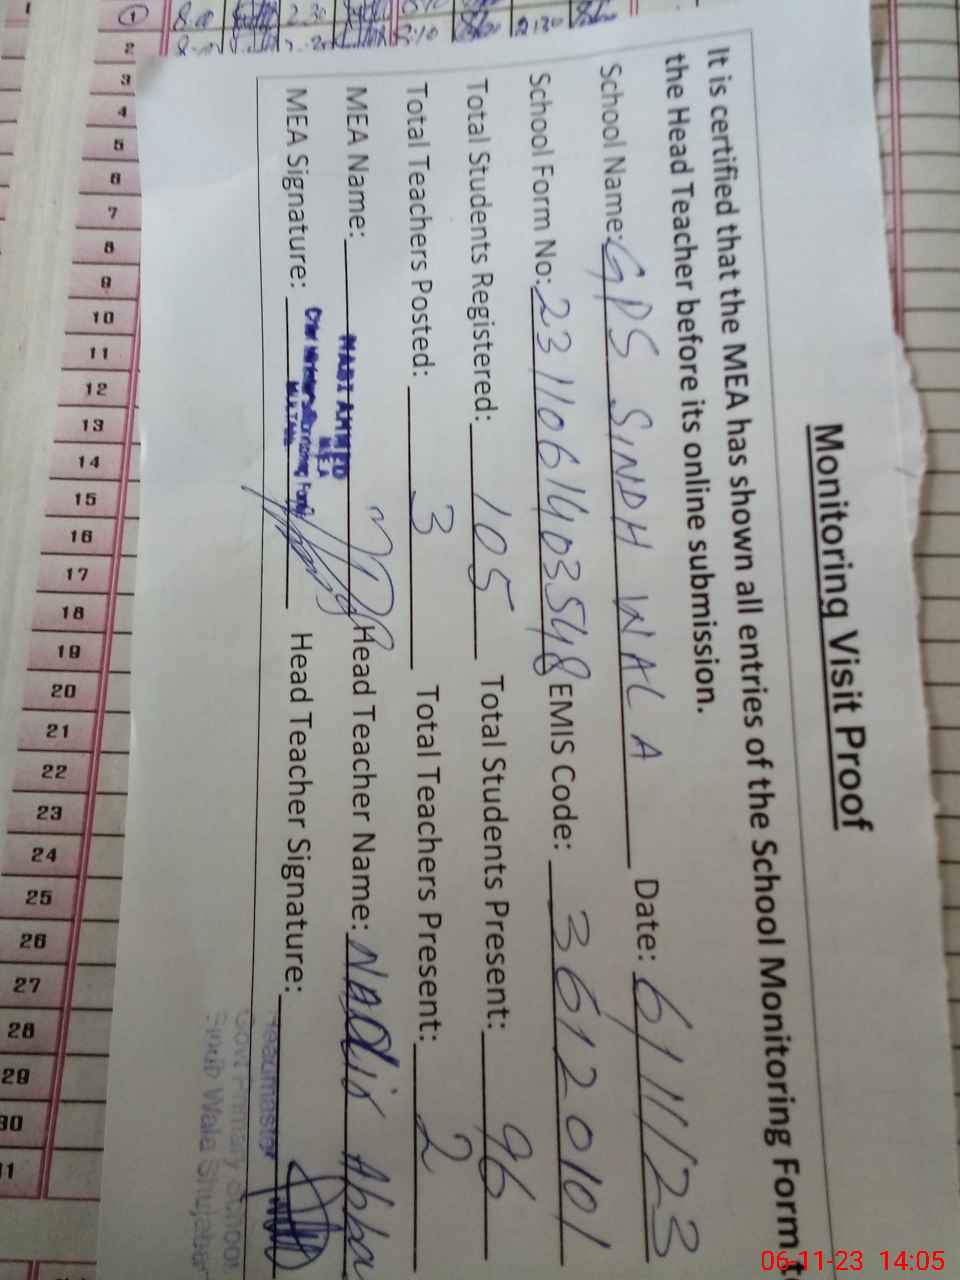 Monitoring Visit Proof
It is certified that the MEA has shown all entries of the School Monitoring Form t
the Head Teacher before its online submission.
School Name: GPS SINDH WALA Date: 6/11/23
School Form No: 2311061403548 EMIS Code: 36120101
Total Students Registered: 105 Total Students Present: 96
Total Teachers Posted: 3 Total Teachers Present: 2
MEA Name: AHMED Head Teacher Name: Abba
MEA
MEA Signature: Head Teacher Signature:
Headmaster
Govt Primary School
Wala
1
2
3
4
5
6
7
8
9
10
11
12
13
14
15
16
17
18
19
20
21
22
23
24
25
26
27
28
29
30
06-11-23 14:05